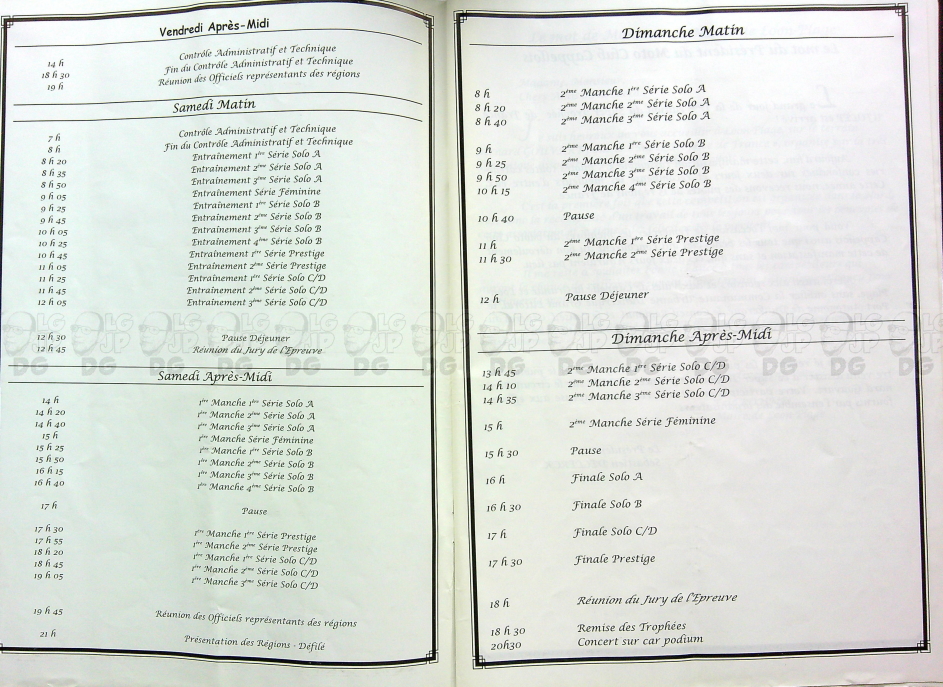 Vendredi Après-Midi
14 h Contrôle Administratif et Technique
18 h 30 Fin du Contrôle Administratif et Technique
19 h Réunion des Officiels représentants des régions
Samedi Matin
7 h Contrôle Administratif et Technique
8 h Fin du Contrôle Administratif et Technique
8 h 20 Entraînement 1ère Série Solo A
8 h 35 Entraînement 2ème Série Solo A
8 h 50 Entraînement 3ème Série Solo A
9 h 05 Entraînement Série Féminine
9 h 25 Entraînement 1ère Série Solo B
9 h 45 Entraînement 2ème Série Solo B
10 h 05 Entraînement 3ème Série Solo B
10 h 25 Entraînement 4ème Série Solo B
10 h 45 Entraînement 1ère Série Prestige
11 h 05 Entraînement 2ème Série Prestige
11 h 25 Entraînement 1ère Série Solo C/D
11 h 45 Entraînement 2ème Série Solo C/D
12 h 05 Entraînement 3ème Série Solo C/D
12 h 30 Pause Déjeuner
12 h 45 Réunion du Jury de l'Epreuve
Samedi Après-Midi
14 h 1ère Manche 1ère Série Solo A
14 h 20 1ère Manche 2ème Série Solo A
14 h 40 1ère Manche 3ème Série Solo A
15 h 1ère Manche Série Féminine
15 h 25 1ère Manche 1ère Série Solo B
15 h 50 1ère Manche 2ème Série Solo B
16 h 15 1ère Manche 3ème Série Solo B
16 h 40 1ère Manche 4ème Série Solo B
17 h Pause
17 h 30 1ère Manche 1ère Série Prestige
17 h 55 1ère Manche 2ème Série Prestige
18 h 20 1ère Manche 1ère Série Solo C/D
18 h 45 1ère Manche 2ème Série Solo C/D
19 h 05 1ère Manche 3ème Série Solo C/D
19 h 45 Réunion des Officiels représentants des régions
21 h Présentation des Régions - Défilé
Dimanche Matin
8 h 2ème Manche 1ère Série Solo A
8 h 20 2ème Manche 2ème Série Solo A
8 h 40 2ème Manche 3ème Série Solo A
9 h 2ème Manche 1ère Série Solo B
9 h 25 2ème Manche 2ème Série Solo B
9 h 50 2ème Manche 3ème Série Solo B
10 h 15 2ème Manche 4ème Série Solo B
10 h 40 Pause
11 h 2ème Manche 1ère Série Prestige
11 h 30 2ème Manche 2ème Série Prestige
12 h Pause Déjeuner
Dimanche Après-Midi
13 h 45 2ème Manche 1ère Série Solo C/D
14 h 10 2ème Manche 2ème Série Solo C/D
14 h 35 2ème Manche 3ème Série Solo C/D
15 h 2ème Manche Série Féminine
15 h 30 Pause
16 h Finale Solo A
16 h 30 Finale Solo B
17 h Finale Solo C/D
17 h 30 Finale Prestige
18 h Réunion du Jury de l'Epreuve
18 h 30 Remise des Trophées
20h30 Concert sur car podium